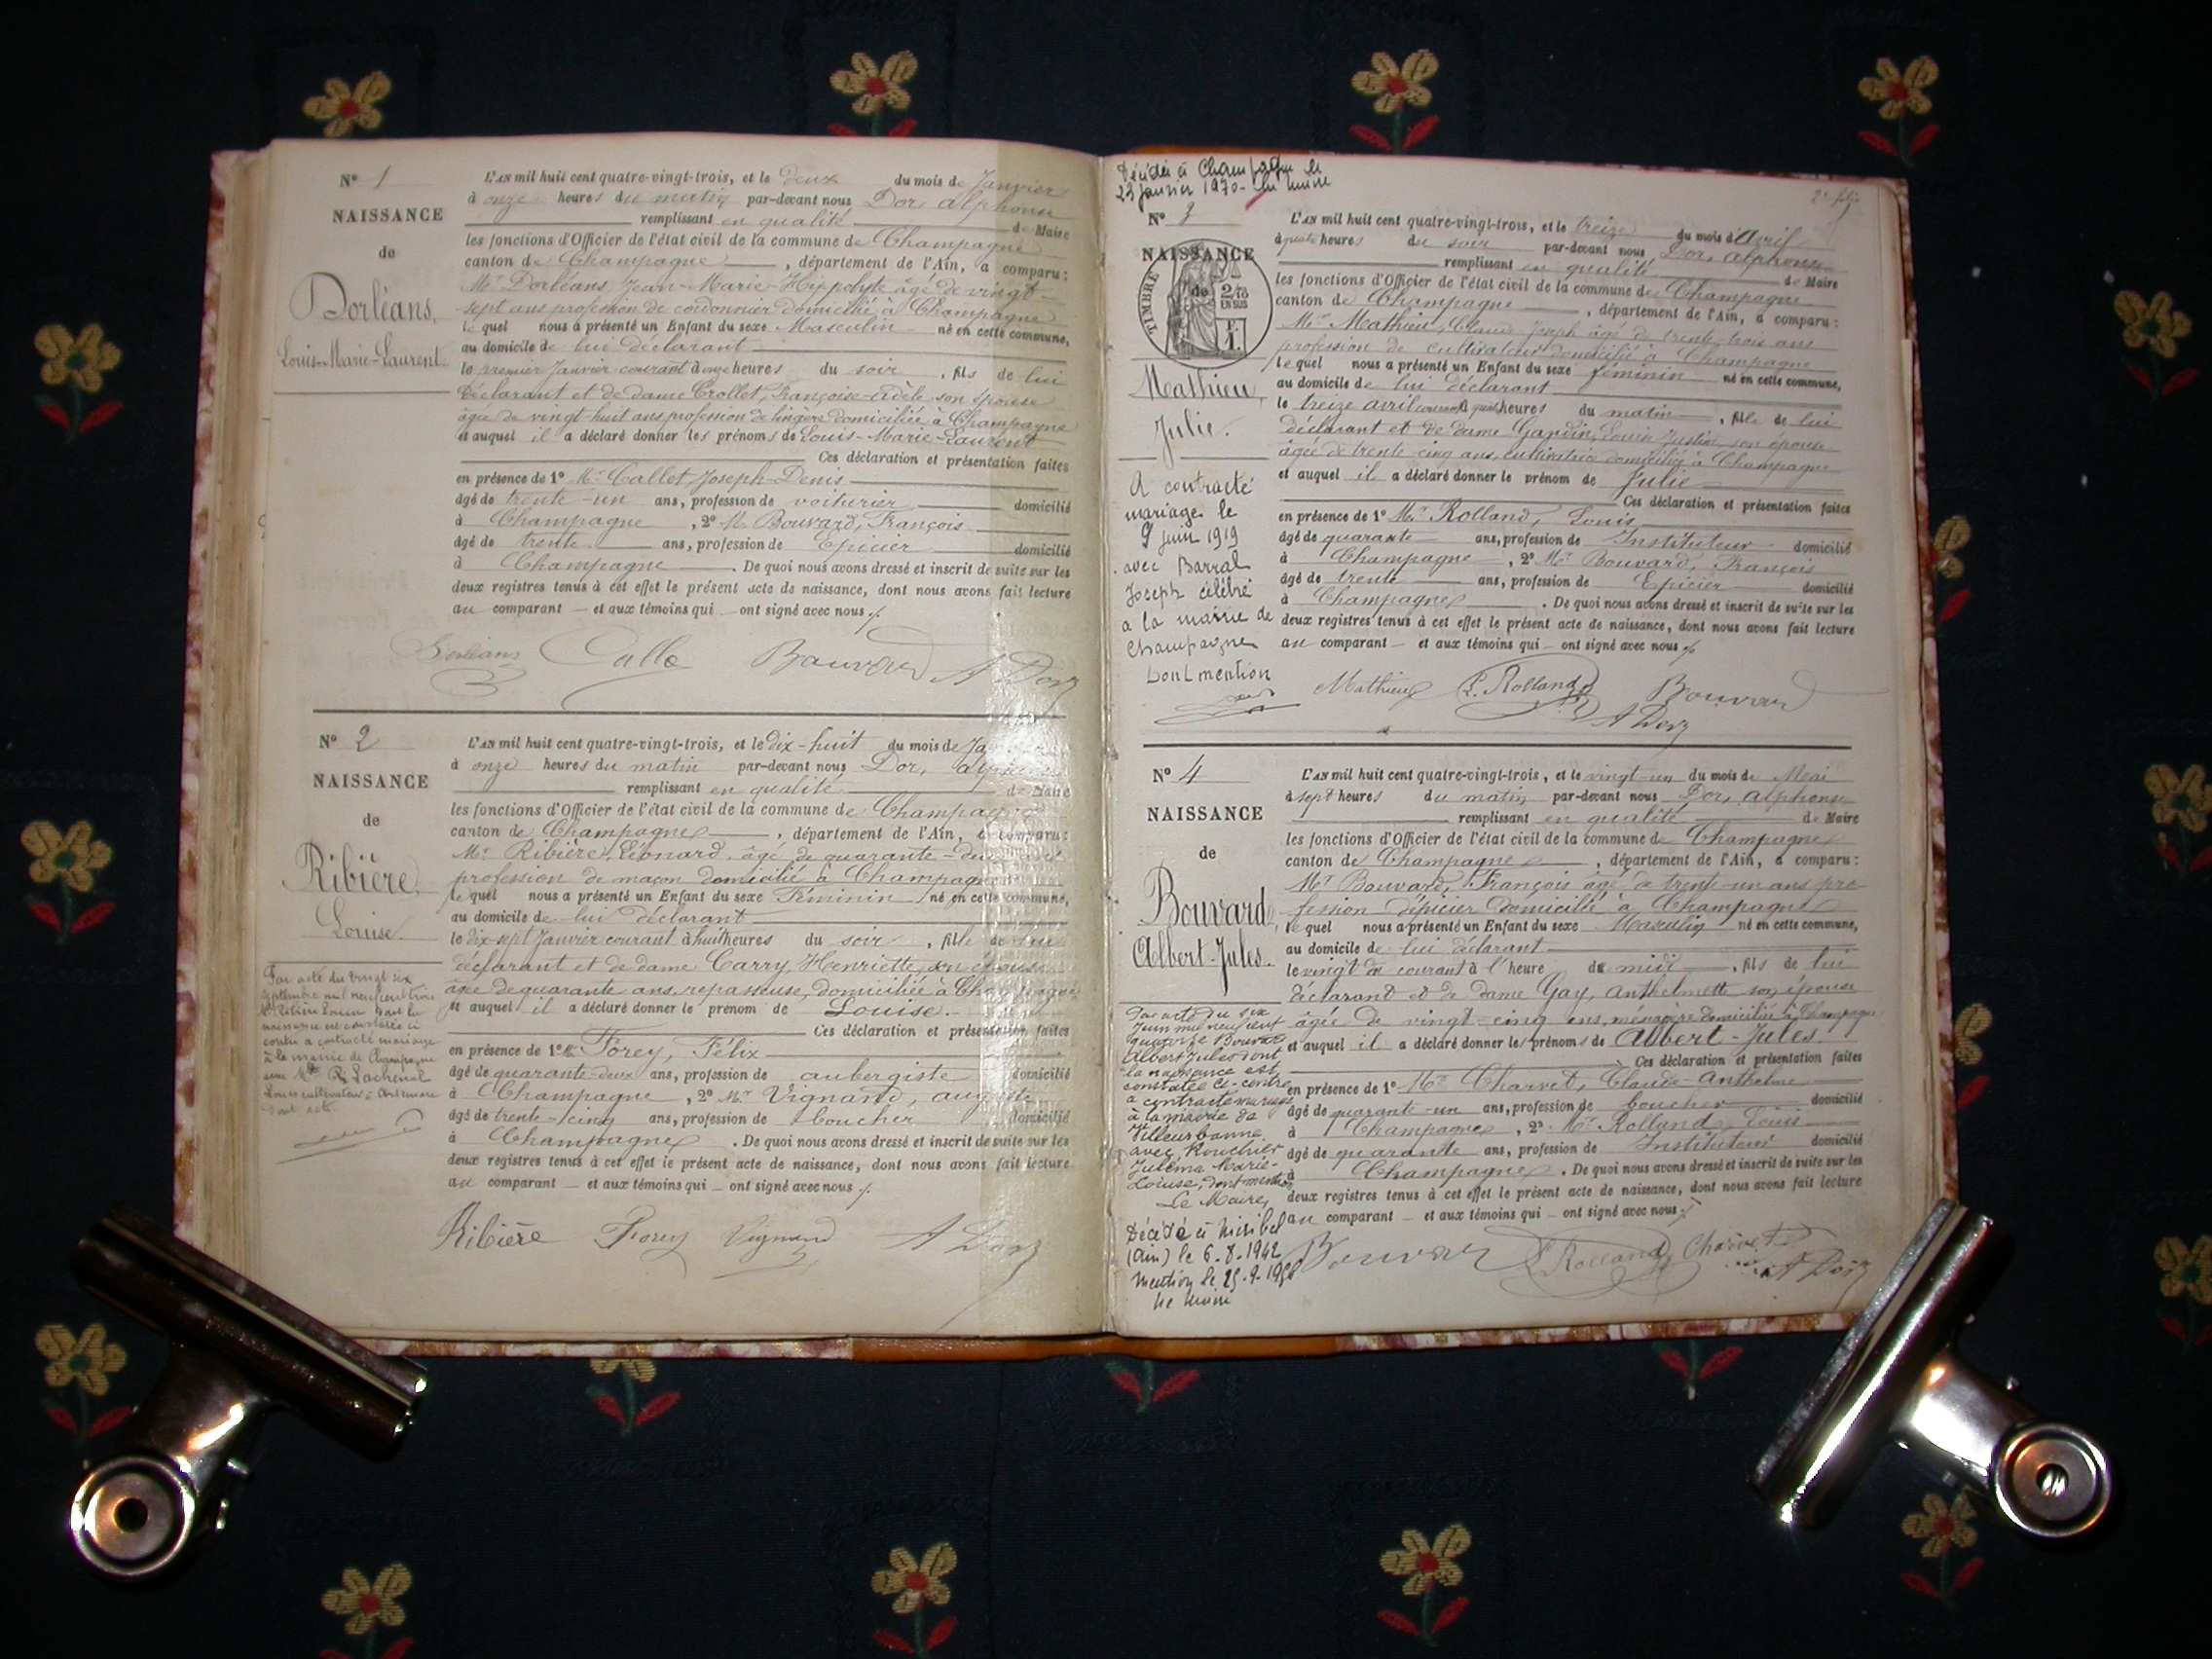 N° 1
NAISSANCE
de
Dorléans,
Louis-Marie-Laurent.
L'AN mil huit cent quatre-vingt-trois, et le deux du mois de Janvier
à onze heures du matin par-devant nous Dor, alphonse
remplissant en qualité de Maire
les fonctions d'Officier de l'état civil de la commune de Champagne
canton de Champagne, département de l'Ain, a comparu:
Mr Dorléans, Jean-Marie-Hippolyte âgé de vingt-
sept ans profession de cordonnier domicilié à Champagne
le quel nous a présenté un Enfant du sexe Masculin né en cette commune,
au domicile de lui déclarant
le premier Janvier courant à onze heures du soir, fils de lui
déclarant et de dame Crollet, Françoise-Adèle son épouse
âgée de vingt huit ans profession de lingère domiciliée à Champagne
et auquel il a déclaré donner les prénoms de Louis-Marie-Laurent
Ces déclaration et présentation faites
en présence de 1° Mr Callet Joseph-Denis
âgé de trente-un ans, profession de voiturier domicilié
à Champagne, 2° Mr Bouvard, François
âgé de trente ans, profession de Epicier domicilié
à Champagne. De quoi nous avons dressé et inscrit de suite sur les
deux registres tenus à cet effet le présent acte de naissance, dont nous avons fait lecture
au comparant et aux témoins qui ont signé avec nous
Dorléans Calle Bouvard A Dor
N° 2
NAISSANCE
de
Ribière
Louise.
Par acte du vingt six
septembre mil neuf cent trois
à la mairie de Champagne
Lachenal
L'AN mil huit cent quatre-vingt-trois, et le dix-huit du mois de
à onze heures du matin par-devant nous Dor,
remplissant en qualité de Maire
les fonctions d'Officier de l'état civil de la commune de Champagne
canton de Champagne, département de l'Ain, a comparu:
Mr Ribière, Léonard, âgé de quarante-
profession de maçon domicilié à Champagne
le quel nous a présenté un Enfant du sexe Féminin né en cette commune,
au domicile de lui déclarant
le dix-sept Janvier courant à huit heures du soir, fille de lui
déclarant et de dame Carry, Henriette, son épouse
âgée de quarante ans, repasseuse, domiciliée à Champagne
et auquel il a déclaré donner le prénom de Louise.
Ces déclaration et présentation faites
en présence de 1° Mr Forey, Félix
âgé de quarante-deux ans, profession de aubergiste domicilié
à Champagne, 2° Mr Vignand, auguste
âgé de trente-cinq ans, profession de boucher domicilié
à Champagne. De quoi nous avons dressé et inscrit de suite sur les
deux registres tenus à cet effet le présent acte de naissance, dont nous avons fait lecture
au comparant et aux témoins qui ont signé avec nous
Ribière Forey Vignand A Dor
Décédée à Champagne le
23 janvier 1970 - Le Maire
N° 3
NAISSANCE
de
TIMBRE
2/10
EN SUS
Mathieu,
Julie.
A contracté
mariage le
9 juin 1919
avec Barral
Joseph célébré
à la mairie de
Champagne
Dont mention
L'AN mil huit cent quatre-vingt-trois, et le treize du mois d'Avril
à quatre heures du soir par-devant nous Dor, alphonse
remplissant en qualité de Maire
les fonctions d'Officier de l'état civil de la commune de Champagne
canton de Champagne, département de l'Ain, a comparu:
Mr Mathieu, Claude Joseph âgé de trente trois ans
profession de cultivateur domicilié à Champagne
le quel nous a présenté un Enfant du sexe féminin né en cette commune,
au domicile de lui déclarant
le treize avril courant à quatre heures du matin, fille de lui
déclarant et de dame Gandin, son épouse
âgée de trente-cinq ans, cultivatrice domiciliée à Champagne
et auquel il a déclaré donner le prénom de Julie
Ces déclaration et présentation faites
en présence de 1° Mr Rolland, Louis
âgé de quarante ans, profession de Instituteur domicilié
à Champagne, 2° Mr Bouvard, François
âgé de trente ans, profession de Epicier domicilié
à Champagne. De quoi nous avons dressé et inscrit de suite sur les
deux registres tenus à cet effet le présent acte de naissance, dont nous avons fait lecture
au comparant et aux témoins qui ont signé avec nous
Mathieu L. Rolland Bouvard
A Dor
N° 4
NAISSANCE
de
Bouvard,
Albert-Jules.
Par acte du six
Juin mil neuf cent
quatorze Bouvard
Albert Jules dont
la naissance est
constatée ci-contre
a contracté mariage
à la mairie de
Villeurbanne
avec Rouchier
Juléma Marie-
Louise, dont mention
Le Maire,
Décédé à Miribel
(Ain) le 6.8.1942
Mention le
Le Maire
L'AN mil huit cent quatre-vingt-trois, et le vingt-un du mois de Mai
à sept heures du matin par-devant nous Dor, alphonse
remplissant en qualité de Maire
les fonctions d'Officier de l'état civil de la commune de Champagne
canton de Champagne, département de l'Ain, a comparu:
Mr Bouvard, François âgé de trente-un ans pro
fession d'épicier domicilié à Champagne
le quel nous a présenté un Enfant du sexe Masculin né en cette commune,
au domicile de lui déclarant
le vingt du courant à l'heure de midi, fils de lui
déclarant et de dame Gay, Anthelmette son épouse
âgée de vingt-cinq ans, ménagère domiciliée à Champagne
et auquel il a déclaré donner les prénoms de Albert-Jules.
Ces déclaration et présentation faites
en présence de 1° Mr Charvet, Claude-Anthelme
âgé de quarante-un ans, profession de boucher domicilié
à Champagne, 2° Mr Rolland, Louis
âgé de quarante ans, profession de Instituteur domicilié
à Champagne. De quoi nous avons dressé et inscrit de suite sur les
deux registres tenus à cet effet le présent acte de naissance, dont nous avons fait lecture
au comparant et aux témoins qui ont signé avec nous
Bouvard L. Rolland Charvet A Dor